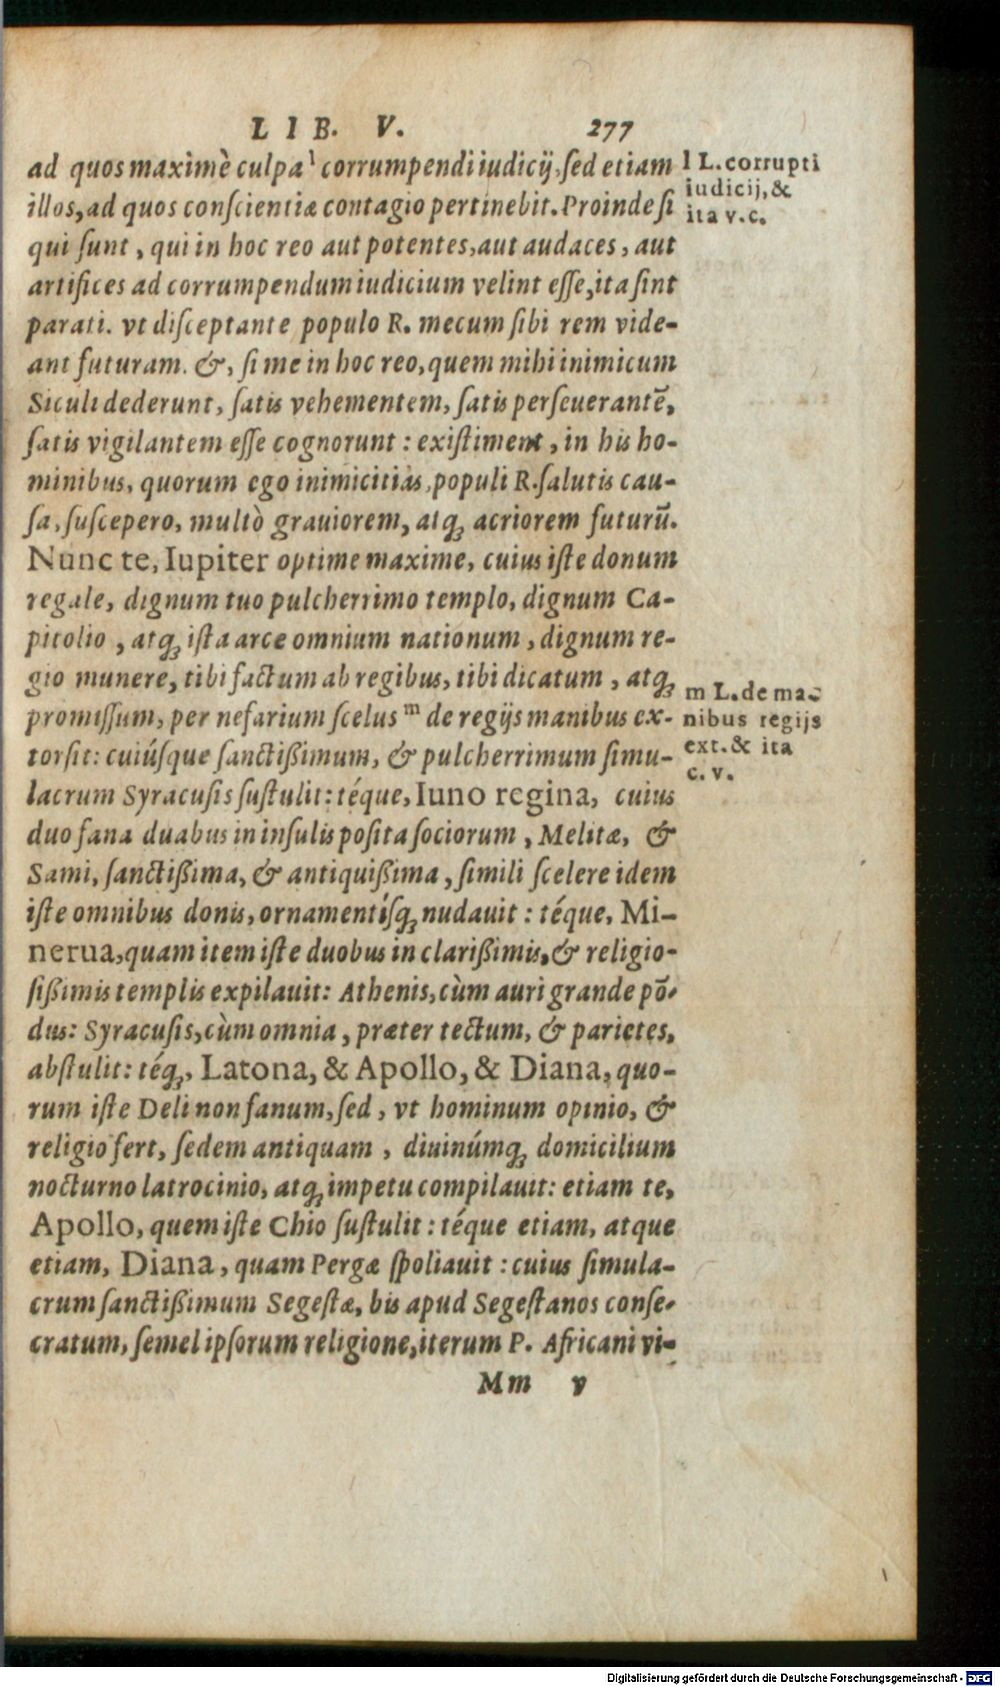 LIB. V. 277
ad quos maximè culpa l corrumpendi iudicij, ſed etiam
illos, ad quos conſcientiæ contagio pertinebit. Proinde ſi
qui ſunt, qui in hoc reo aut potentes, aut audaces, aut
artifices ad corrumpendum iudicium velint eſſe, ita ſint
parati. vt diſceptante populo R. mecum ſibi rem vide-
ant futuram. &, ſi me in hoc reo, quem mihi inimicum
Siculi dederunt, ſatis vehementem, ſatis perſeuerantē,
ſatis vigilantem eſſe cognorunt: exiſtiment, in his ho-
minibus, quorum ego inimicitias, populi R. ſalutis cau-
ſa, ſuſcepero, multò grauiorem, atq; acriorem futurū.
Nunc te, Iupiter optime maxime, cuius iſte donum
regale, dignum tuo pulcherrimo templo, dignum Ca-
pitolio, atq; iſta arce omnium nationum, dignum re-
gio munere, tibi factum ab regibus, tibi dicatum, atq;
promiſſum, per nefarium ſcelus m de regijs manibus ex-
torſit: cuiúſque ſanctißimum, & pulcherrimum ſimu-
lacrum Syracuſis ſuſtulit: téque, Iuno regina, cuius
duo fana duabus in inſulis poſita ſociorum, Melitæ, &
Sami, ſanctißima, & antiquißima, ſimili ſcelere idem
iſte omnibus donis, ornamentíſq; nudauit: téque, Mi-
nerua, quam item iſte duobus in clarißimis, & religio-
ſißimis templis expilauit: Athenis, cùm auri grande pō-
dus: Syracuſis, cùm omnia, præter tectum, & parietes,
abſtulit: téq;, Latona, & Apollo, & Diana, quo-
rum iſte Deli non fanum, ſed, vt hominum opinio, &
religio fert, ſedem antiquam, diuinúmq; domicilium
nocturno latrocinio, atq; impetu compilauit: etiam te,
Apollo, quem iſte Chio ſuſtulit: téque etiam, atque
etiam, Diana, quam Pergæ ſpoliauit: cuius ſimula-
crum ſanctißimum Segeſtæ, bis apud Segeſtanos conſe-
cratum, ſemel ipſorum religione, iterum P. Africani vi-
Mm v
l L. corrupti
iudicij, &
ita v. c.
m L. de ma-
nibus regijs
ext. & ita
c. v.
Digitalisierung gefördert durch die Deutsche Forschungsgemeinschaft - DFG